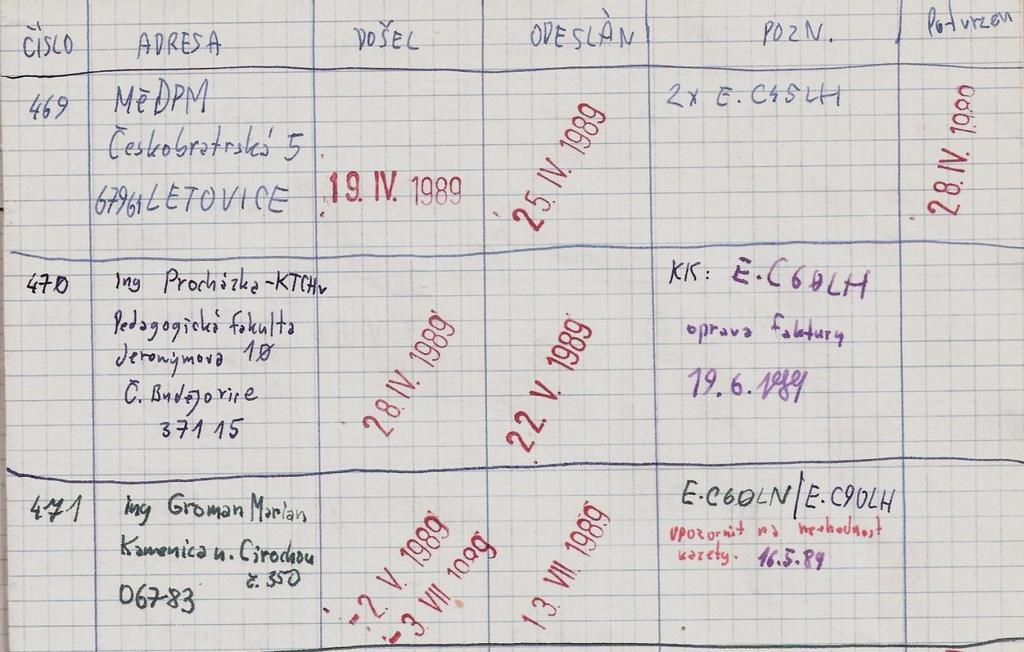 ČÍSLO ADRESA DOŠEL ODESLÁN POZN. Potvrzen
469 MěDPM 2x E.C45LH
Českobratrská 5
67961 LETOVICE 19. IV. 1989 25. IV. 1989 28. IV. 1989
470 ing Procházka-KTCHV KK: E.C60LH
Pedagogická fakulta oprava faktury
Jeronýmova 10 28. IV. 1989 22. V. 1989 19.6.1989
Č. Budějovice
371 15
471 ing Groman Marian E.C60LN/E.C90LH
Kamenica n. Cirochou upozornit na nevhodnost
č. 350 kazety. 16.5.89
067 83 -2. V. 1989 13. VII. 1989
-3 VII 1989